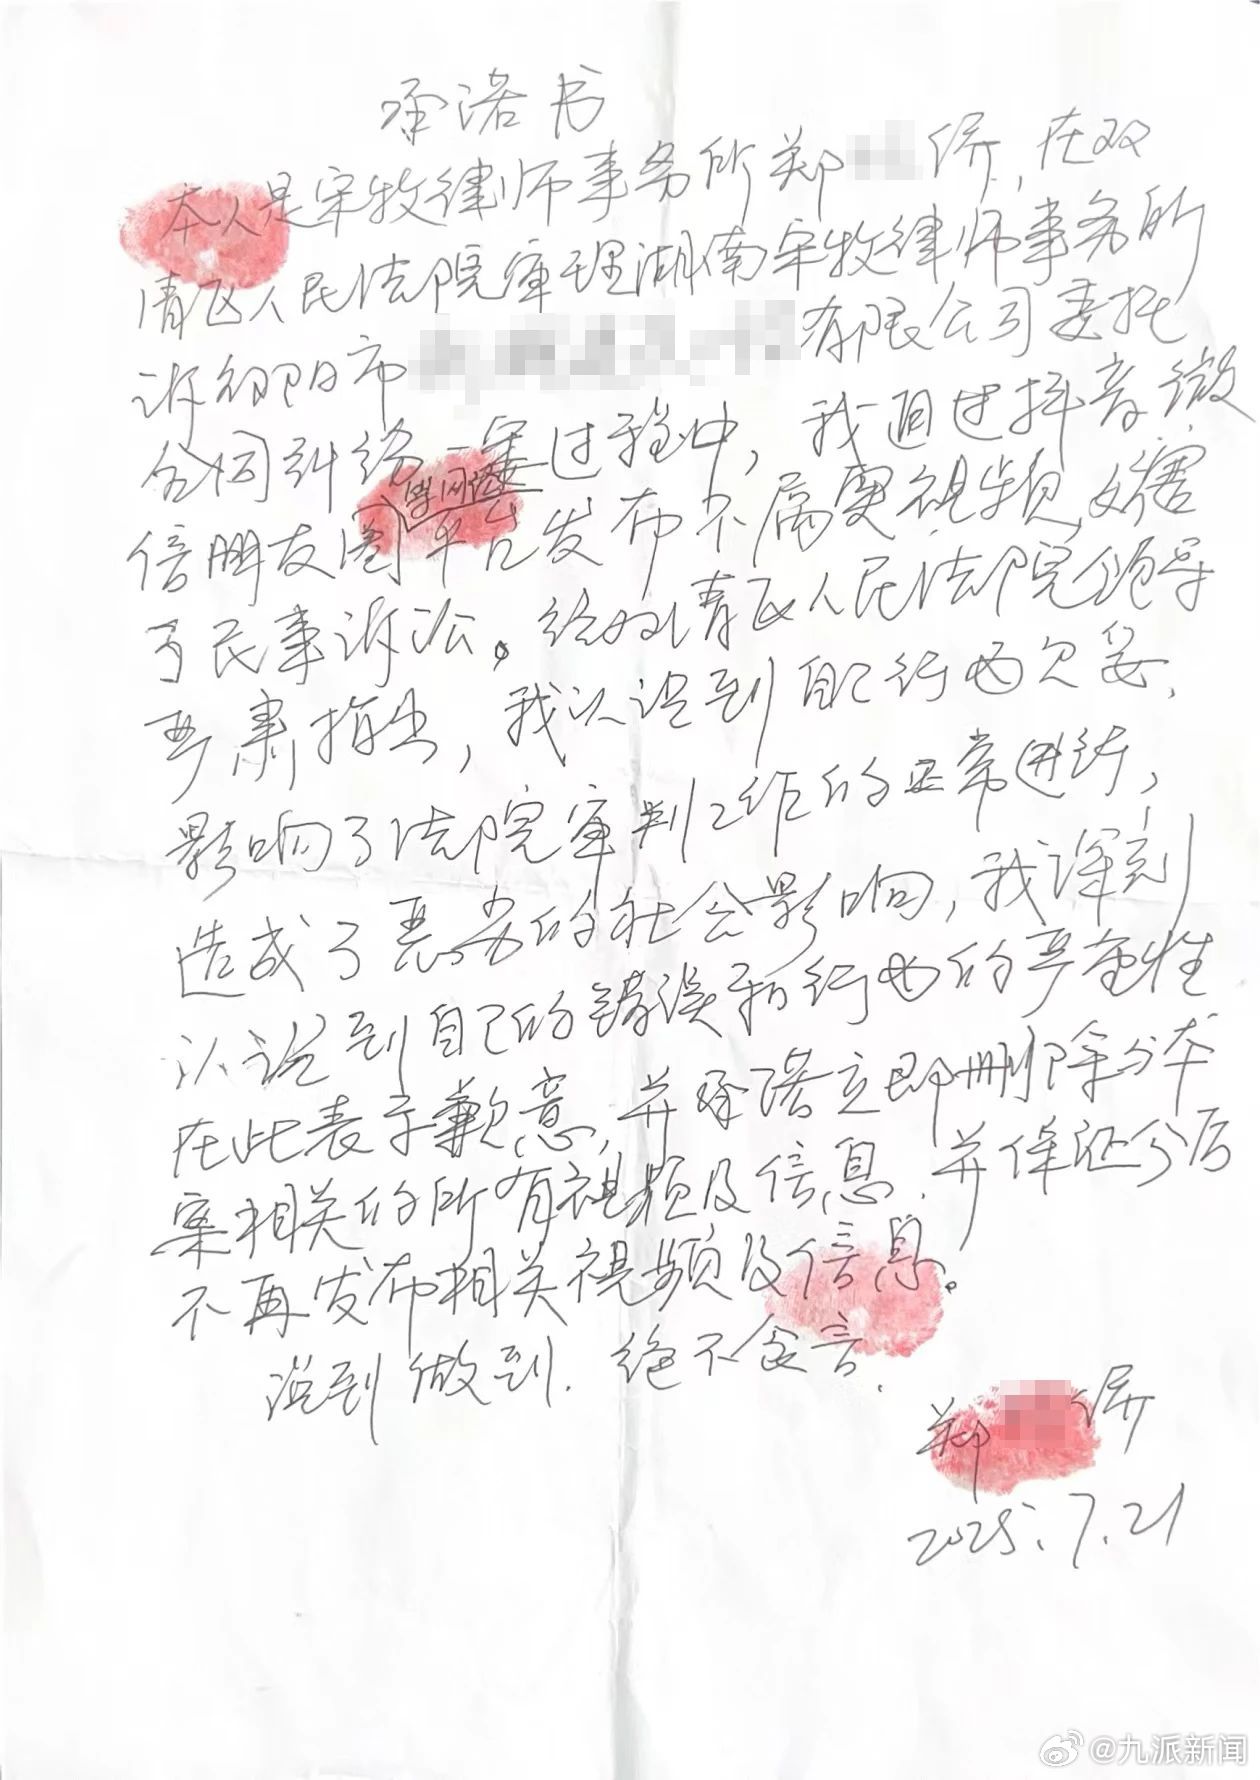 承诺书
本人是宋牧律师事务所郑 侨,在双
清区人民法院审理湖南宋牧律师事务所
诉邵阳市 有限公司委托
合同纠纷一案过程中,我通过抖音、微
信朋友圈等网络平台发布不属实视频,妨害
了民事诉讼。经双清区人民法院领导
严肃指出,我认识到自己行为欠妥,
影响了法院审判工作的正常进行,
造成了恶劣的社会影响,我深刻
认识到自己的错误和行为的严重性
在此表示歉意,并承诺立即删除与本
案相关的所有视频及信息,并保证今后
不再发布相关视频及信息。
说到做到,绝不食言.
郑 侨
2025.7.21
@九派新闻